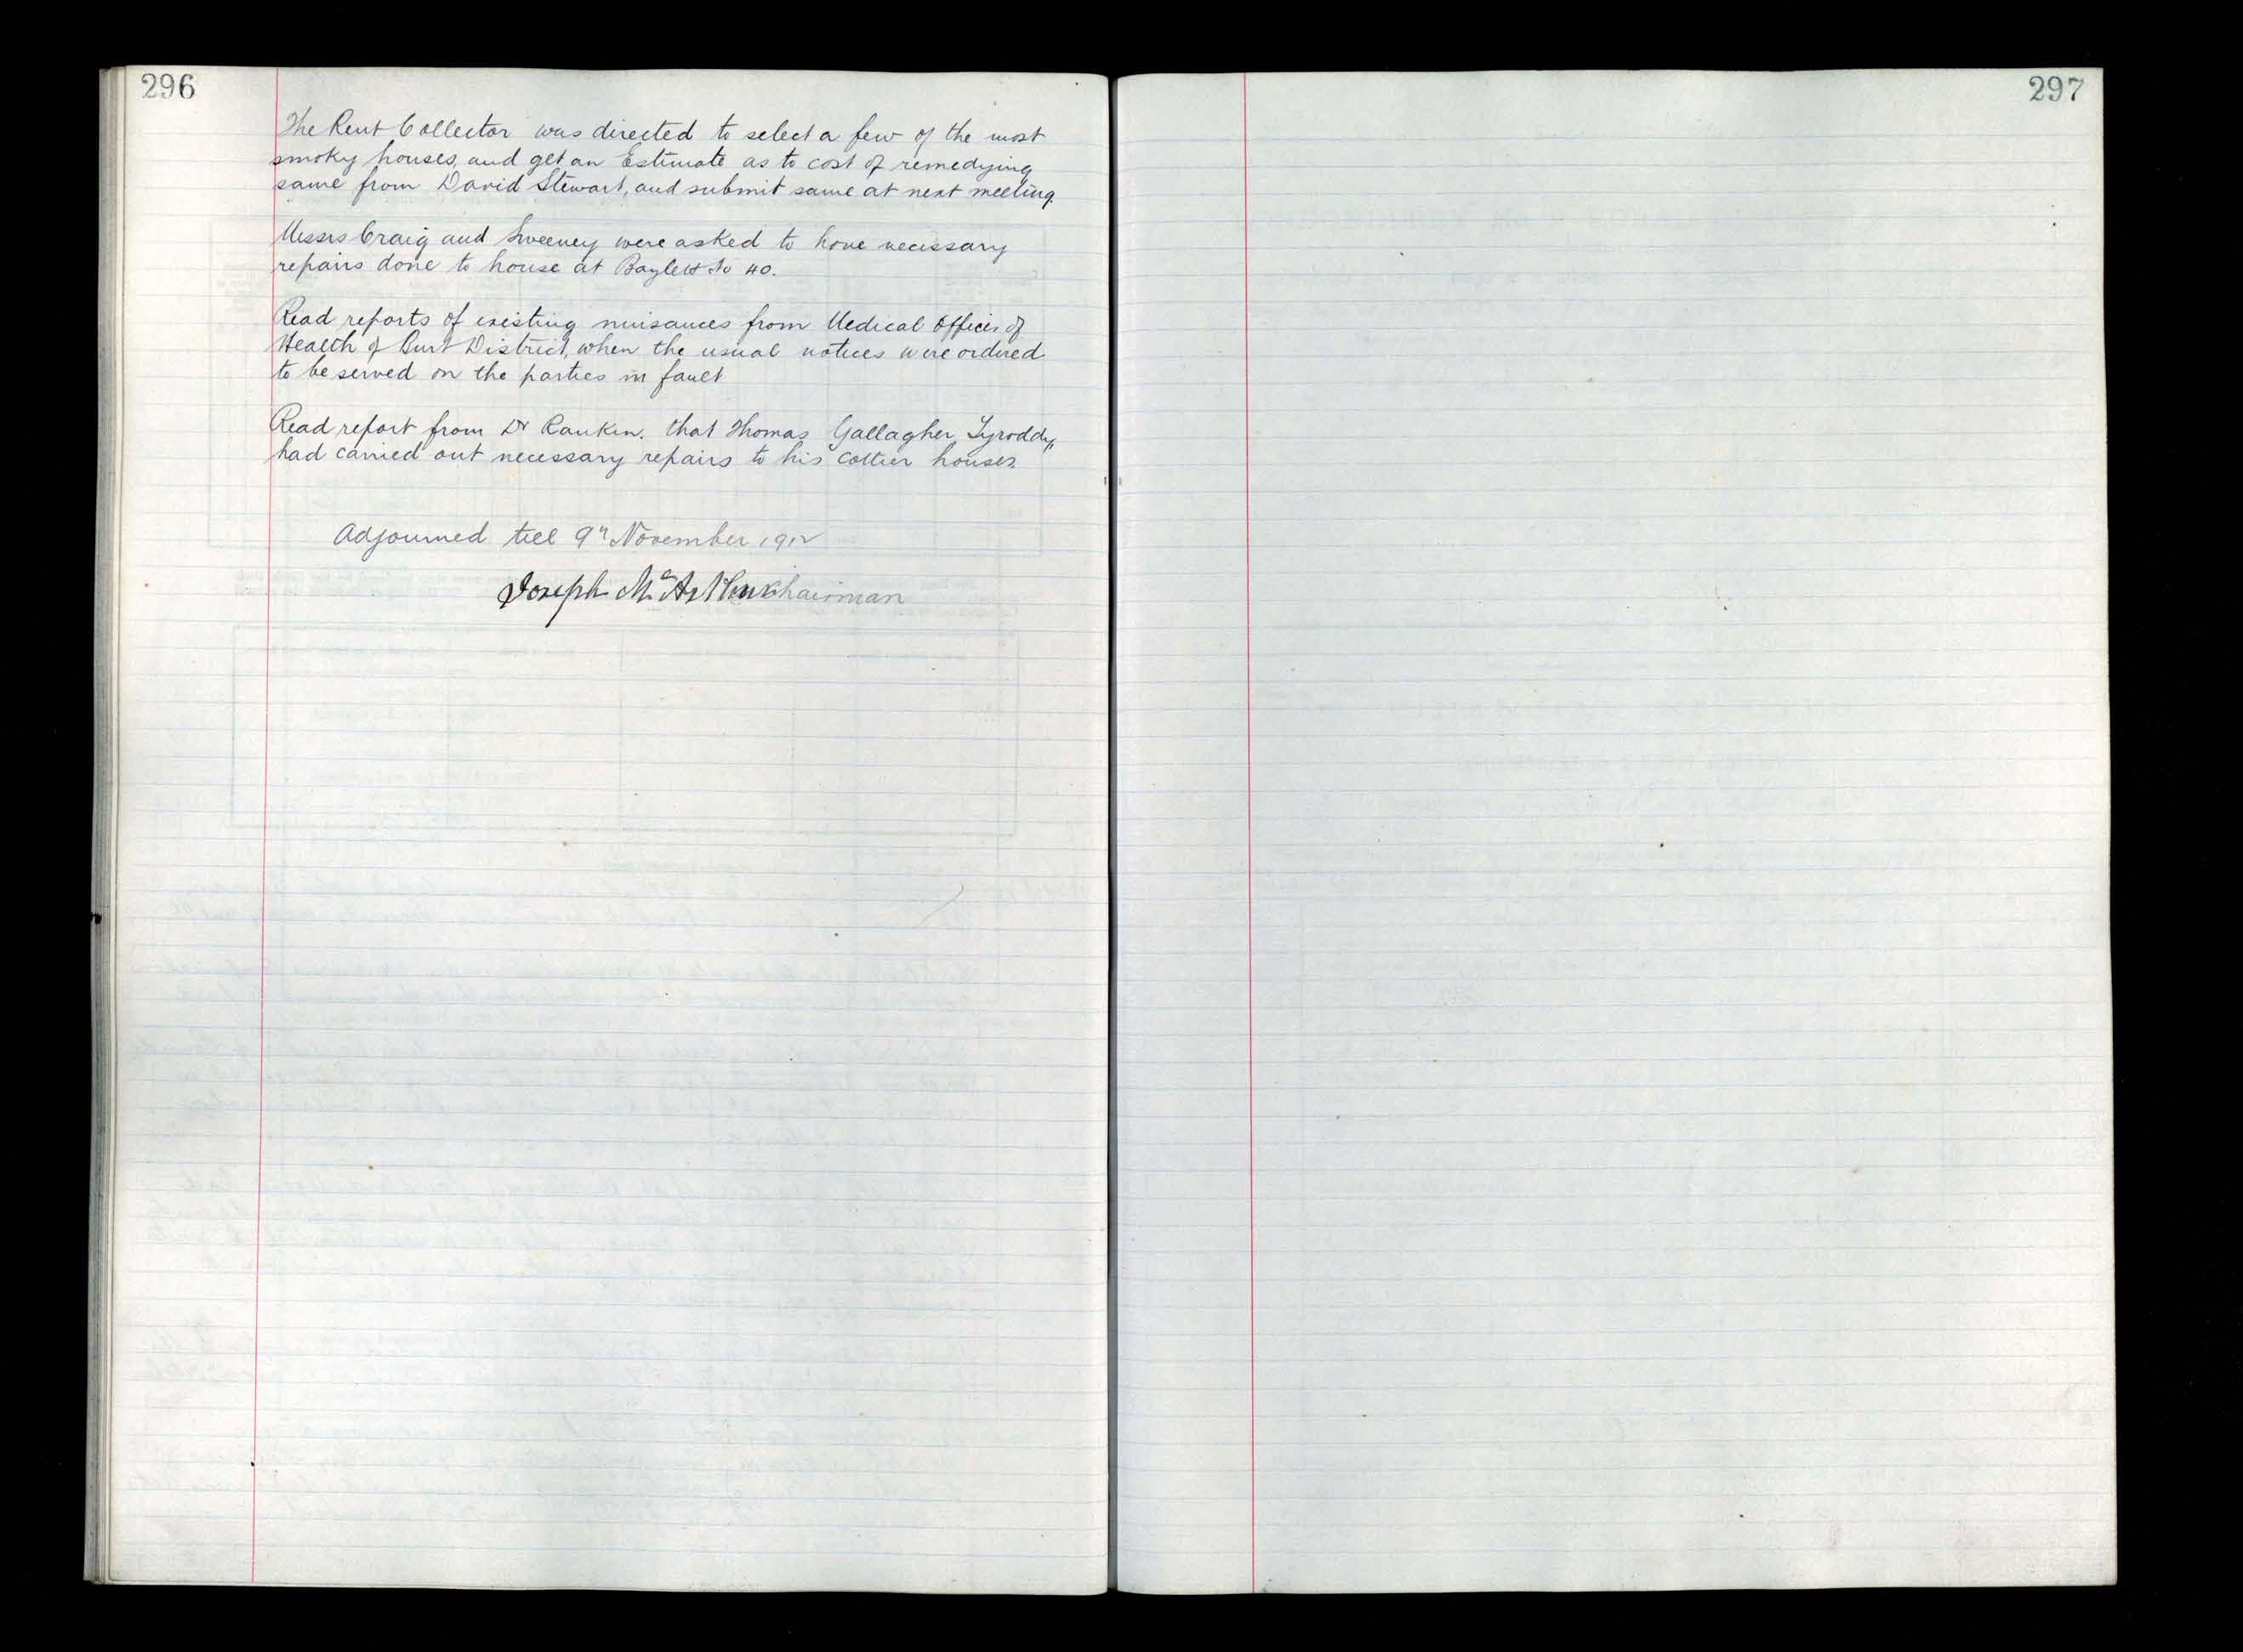 296
The Rent Collector was directed to select a few of the most
smoky houses, and get an Estimate as to cost of remedying
same from David Stewart, and submit same at next meeting.
Messrs Craig and Sweeney were asked to have necessary
repairs done to house at Baylett No 40.
Read reports of existing nuisances from Medical Officer of
Health of Burt District, when the usual notices were ordered
to be served on the parties in fault
Read report from Dr Rankin. that Thomas Gallagher, Tyroddy,
had carried out necessary repairs to his cottier houses
Adjourned till 9th November 1912
Joseph McArthur Chairman
297